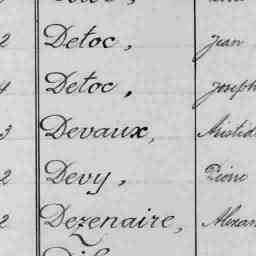 2 Detoc, Jean
4 Detoc, Joseph
3 Devaux, Aristid
2 Devy, Pierre
2 Dezenaire, Alexan